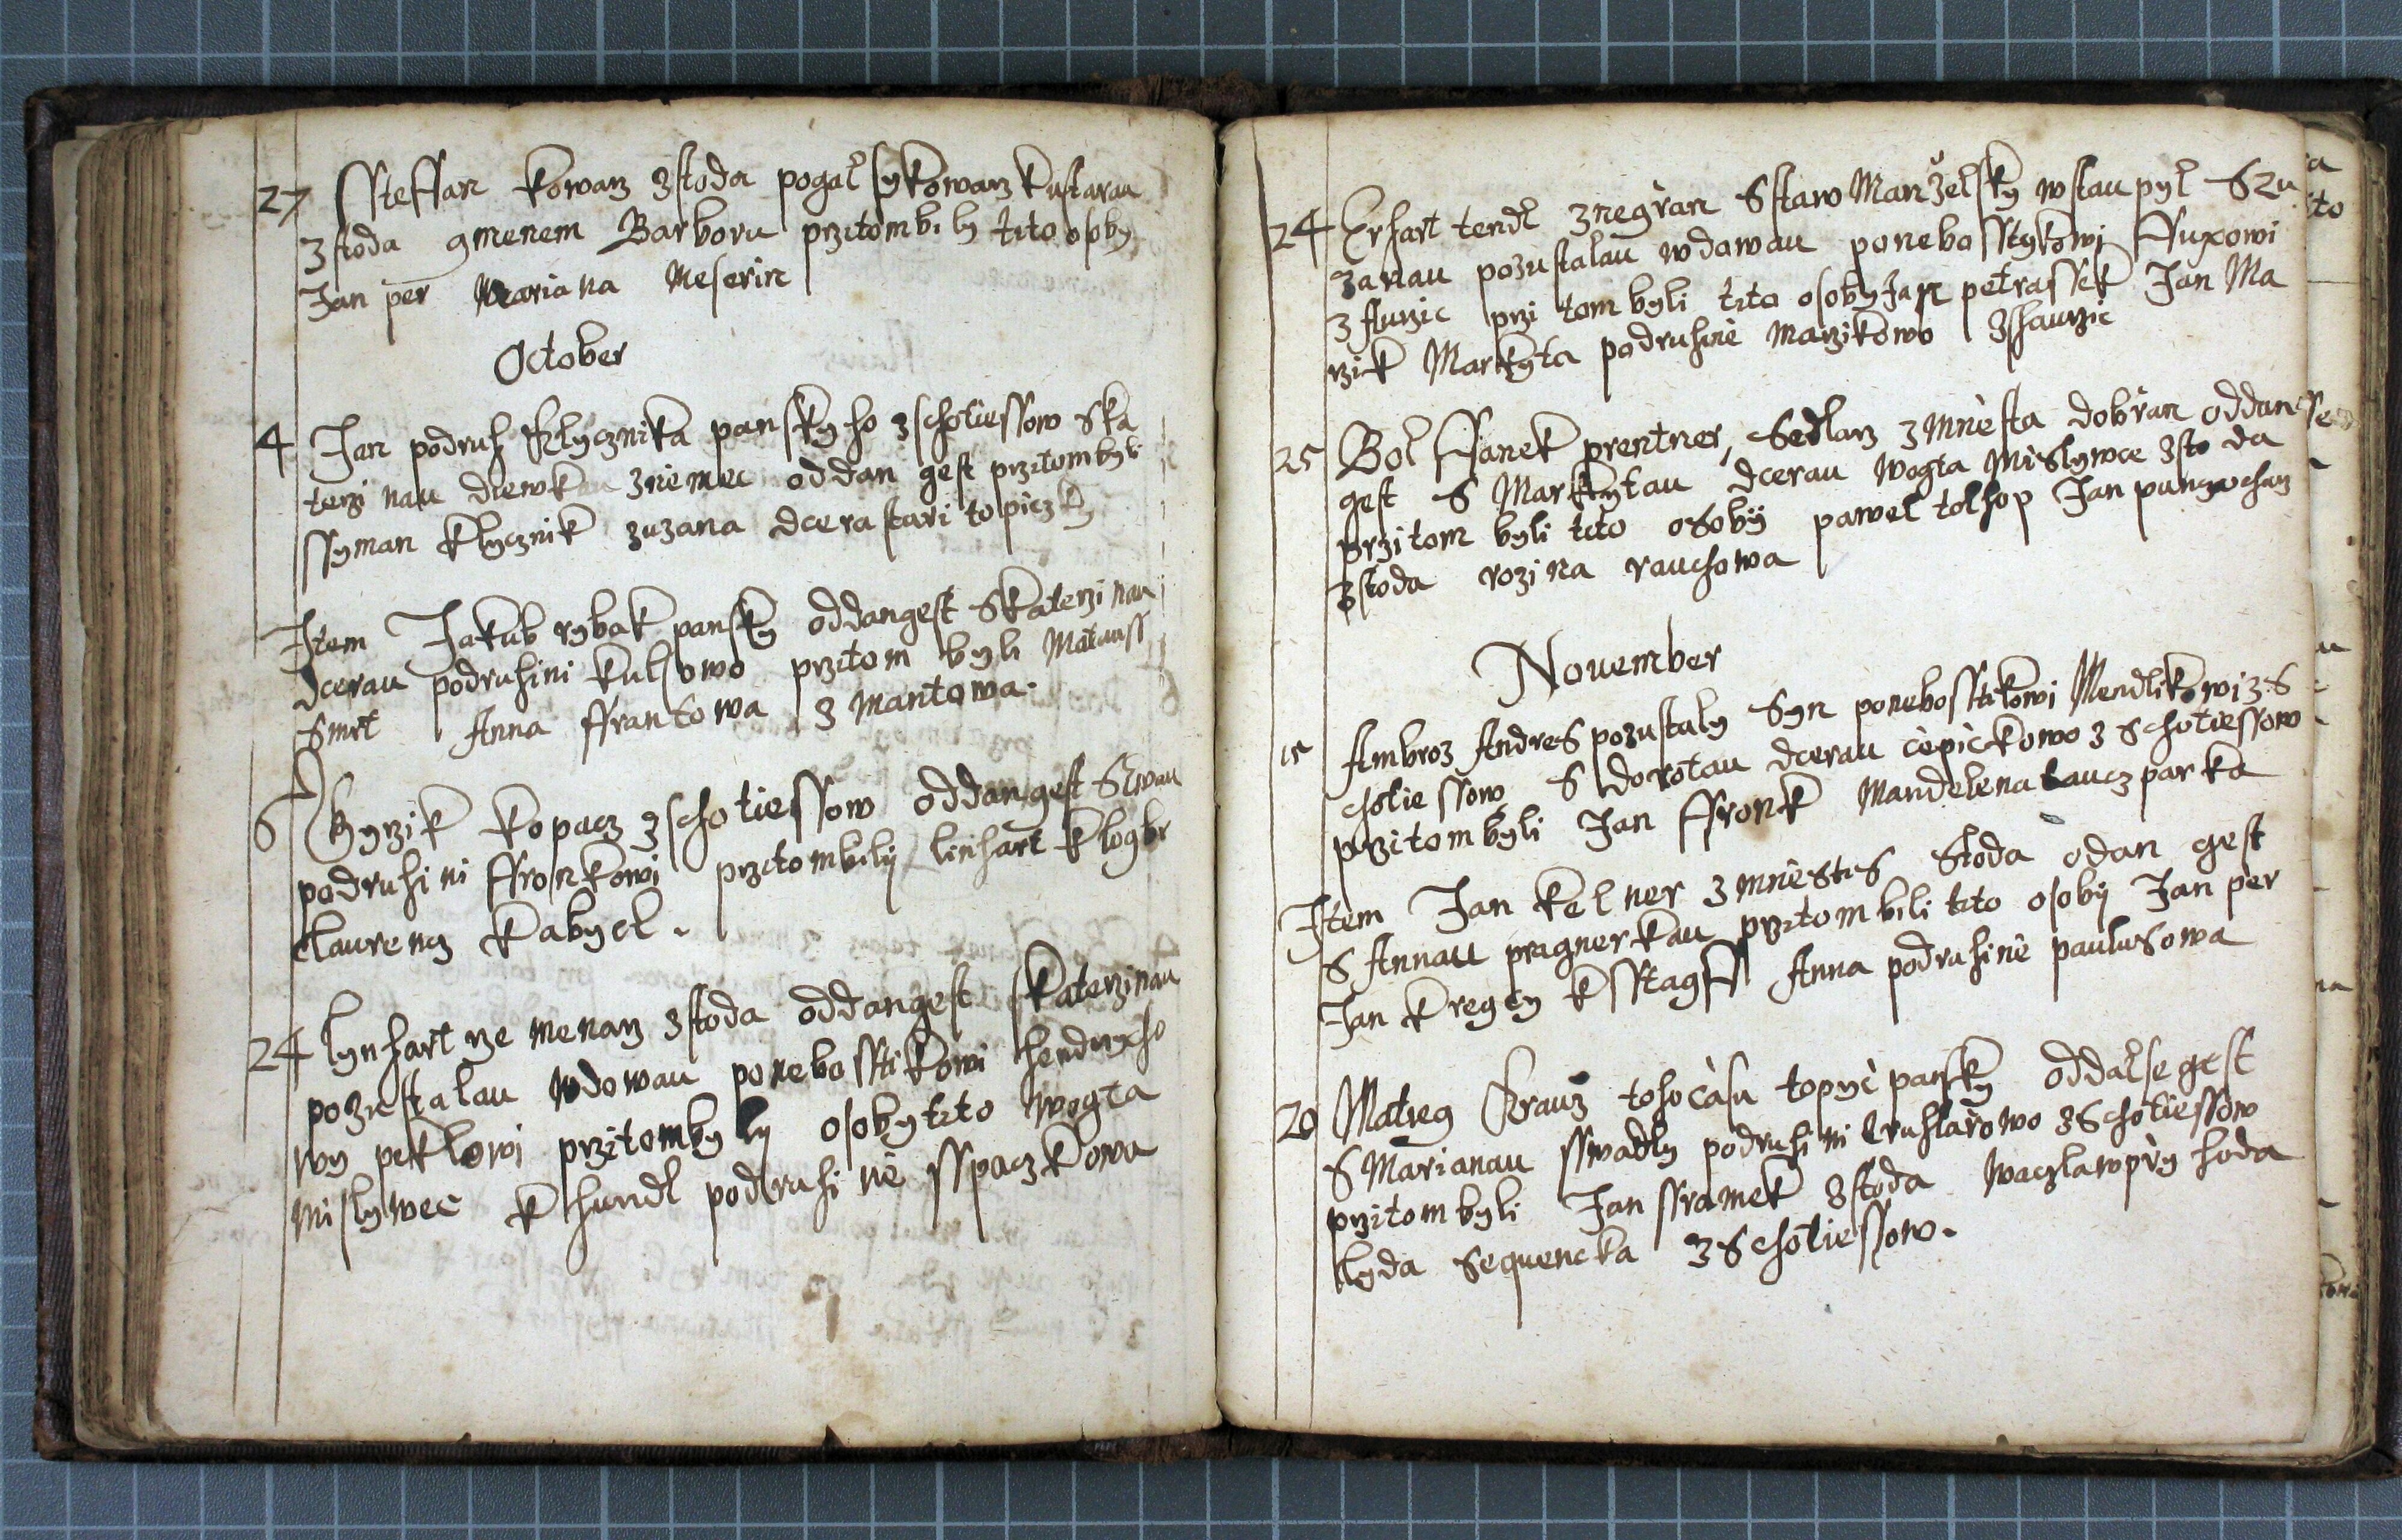 27 Ssteffan kowarz z stoda pogal sy kowarzku starau
z stoda gmenem Barboru przitombily tito osoby
Jan per Mariana Meserin
October
4 Jan podruh klycznika panskyho z schotiessow ska
terzinau diewkau z niemec oddan gest przitombyli
Ssyman klycznik zuzana dcera stari topiczky
Item Jakub rybak pansky oddangest Skaterzinau
dcerau podruhini kulhowo przitom byli Matauss
Smrt Anna ffrantowa z Mantowa.
6 Gyrzik kopacz z schotiessow oddangest S Ewau
podruhini ffronkowi przitombily linhart klogbr
laurencz kabycl.
24 lynhart rzemenarz z stoda oddangest skaterzinau
pozustalau wdowau ponebosstikowi hendrycho
wy peklowi przitombyly osoby tito wogta
mislywec khundl podruhinie sspaczkowa
24 Erhart tendl z negran S staw Manzelsky wstaupyl S zu
zanau pozustalau wdowau ponebosstykowi ffuxowi
z przi tombyli tito osoby Jan petrassek Jan Ma
rzik Markyta podruhinie marzikowo
25 Bol hanek prentner, Sedlarz z mniesta dobran oddan
gest S Markytau dcerau wogta Mislywce z stoda
przitom byli tito osoby pawel tolhop Jan
z stoda rozina rauchowa
November
15 Ambroz Andres pozustaly Syn ponebosstikowi Mendlikowi z S
chotiessow S dorotau dcerau cepickowo z Schotiessow
przitombyli Jan ffronk Mandelena lauczparka
Item Jan kelner z mniestis Stoda odan gest
S Annau pragnerkau przitombili tito osoby Jan per
Jan kregcy Anna podruhinie paulusowa
20 Matieg krauz tohocasu topyc pansky oddal se gest
S Marianau sswadly podruhini truhlarowo z Schotiessow
przitombyli Jan ssramek z stoda waczlaw pryhoda
lyda Sequencka z Schotiessow.